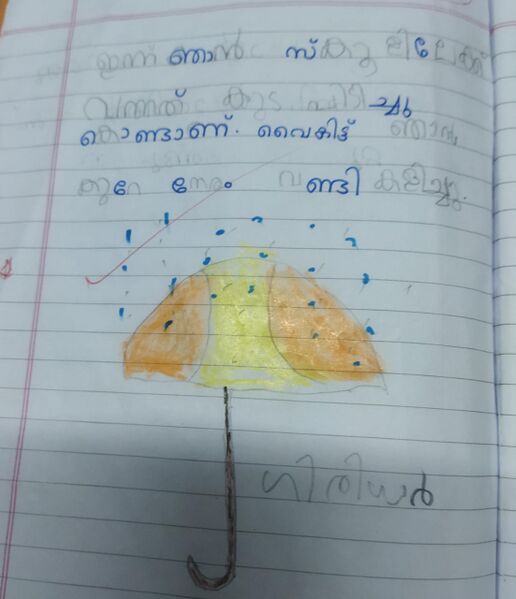 ഇന്ന് ഞാൻ സ്കൂളിലേക്ക്
വന്നത് കുട പിടിച്ചു
കൊണ്ടാണ്. വൈകിട്ട് ഞാൻ
കുറേ നേരം വണ്ടി കളിച്ചു.
ഗിരിധർ